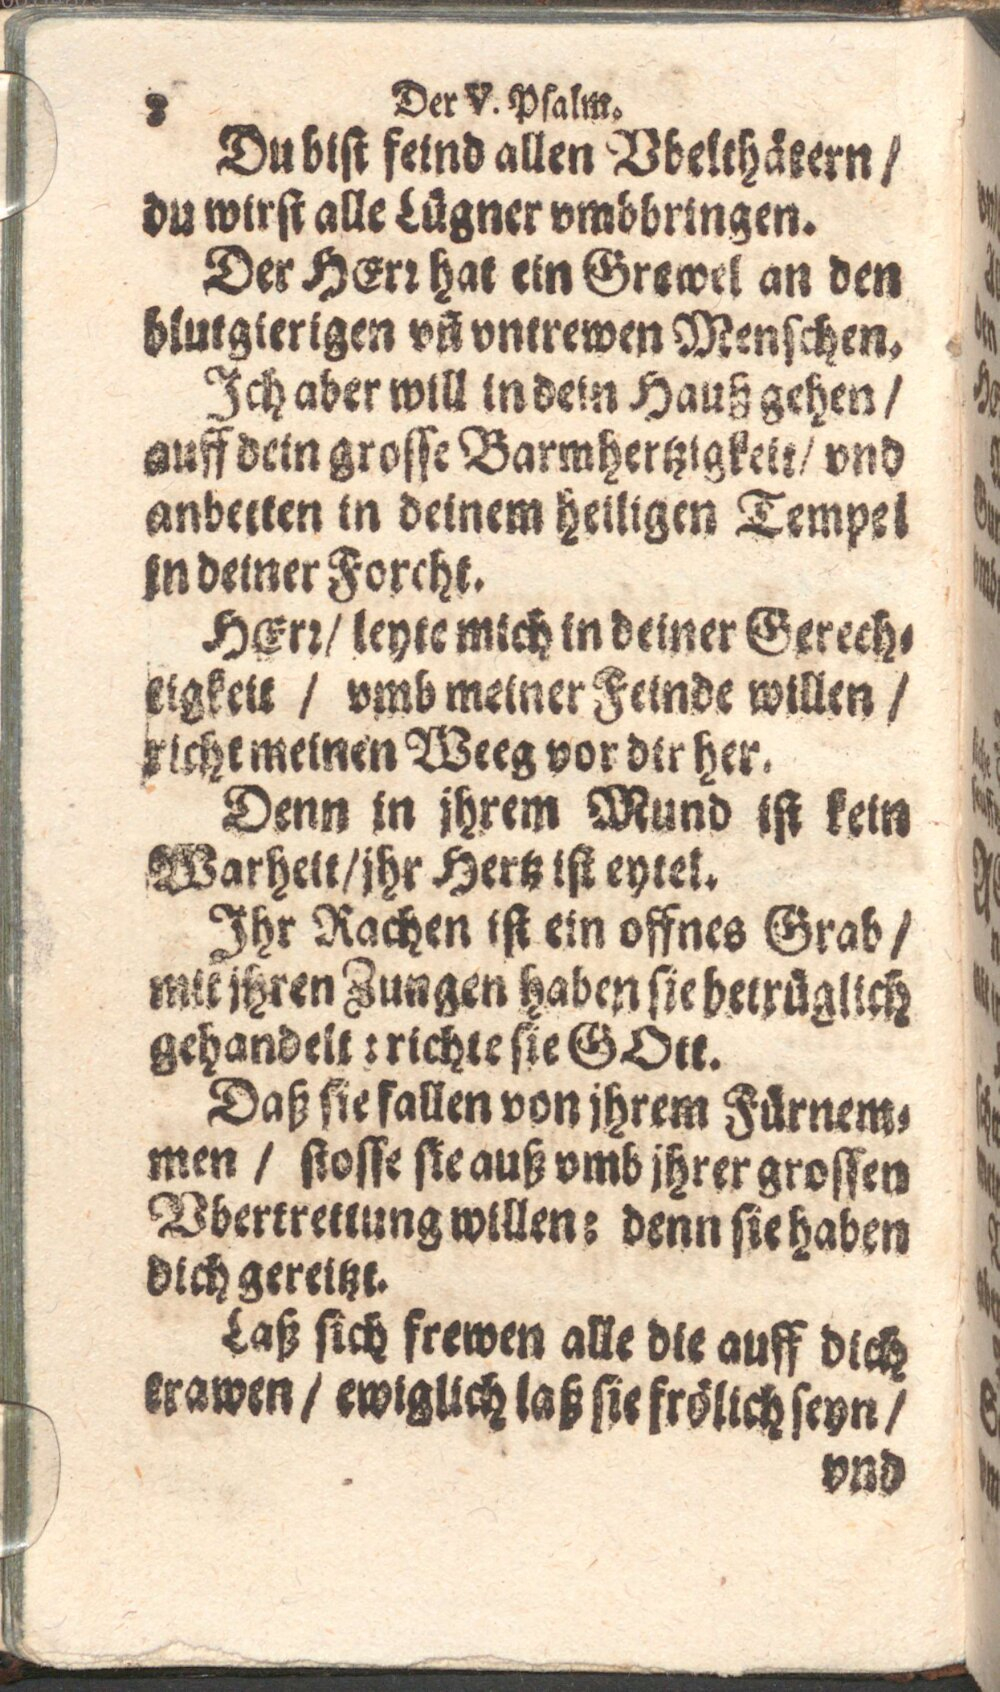 8 Der V. Psalm.
Du bist feind allen Vbelthätern /
du wirst alle Lügner vmbbringen.
Der HErꝛ hat ein Grewel an den
blutgierigen vñ vntrewen Menschen.
Ich aber will in dein Hauß gehen /
auff dein grosse Barmhertzigkeit / vnd
anbetten in deinem heiligen Tempel
in deiner Forcht.
HErꝛ / leyte mich in deiner Gerech-
tigkeit / vmb meiner Feinde willen /
richt meinen Weeg vor dir her.
Denn in jhrem Mund ist kein
Warheit / jhr Hertz ist eytel.
Ihr Rachen ist ein offnes Grab /
mit jhren Zungen haben sie betrüglich
gehandelt : richte sie GOtt.
Daß sie fallen von jhrem Fürnem-
men / stosse sie auß vmb jhrer grossen
Vbertrettung willen : denn sie haben
dich gereitzt.
Laß sich frewen alle die auff dich
trawen / ewiglich laß sie frölich seyn /
vnd